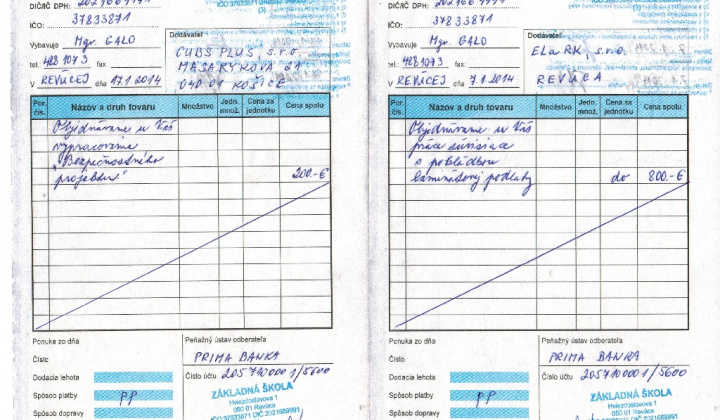 DIČ/IČ DPH:
IČO: 37833871
Vybavuje Mgr. GALO
tel. 4281073 fax
V REVÚCEJ dňa 17.1.2014
Dodávateľ
CUBS PLUS, s.r.o.
MASARYKOVA 21
040 01 KOŠICE
Por. čís.
Názov a druh tovaru
Množstvo
Jedn. množ.
Cena za jednotku
Cena spolu
Objednávame u Vás
vypracovanie
"Bezpečnostného
projektu" 200.-€
Ponuka zo dňa
Číslo
Dodacia lehota
Spôsob platby PP
Spôsob dopravy
Peňažný ústav odberateľa
PRIMA BANKA
Číslo účtu 2057100001/5600
ZÁKLADNÁ ŠKOLA
Hviezdoslavova 1
050 01 Revúca
IČO:37833871 DIČ:2021669991
DIČ/IČ DPH:
IČO: 37833871
Vybavuje Mgr. GALO
tel. 4281073 fax
V REVÚCEJ dňa 7.1.2014
Dodávateľ
ELaRK, s.r.o.
REVÚCA
Por. čís.
Názov a druh tovaru
Množstvo
Jedn. množ.
Cena za jednotku
Cena spolu
Objednávame u Vás
práce súvisiace
s pokládkou
laminátovej podlahy do 800.-€
Ponuka zo dňa
Číslo
Dodacia lehota
Spôsob platby PP
Spôsob dopravy
Peňažný ústav odberateľa
PRIMA BANKA
Číslo účtu 2057100001/5600
ZÁKLADNÁ ŠKOLA
Hviezdoslavova 1
050 01 Revúca
IČO:37833871 DIČ:2021669991